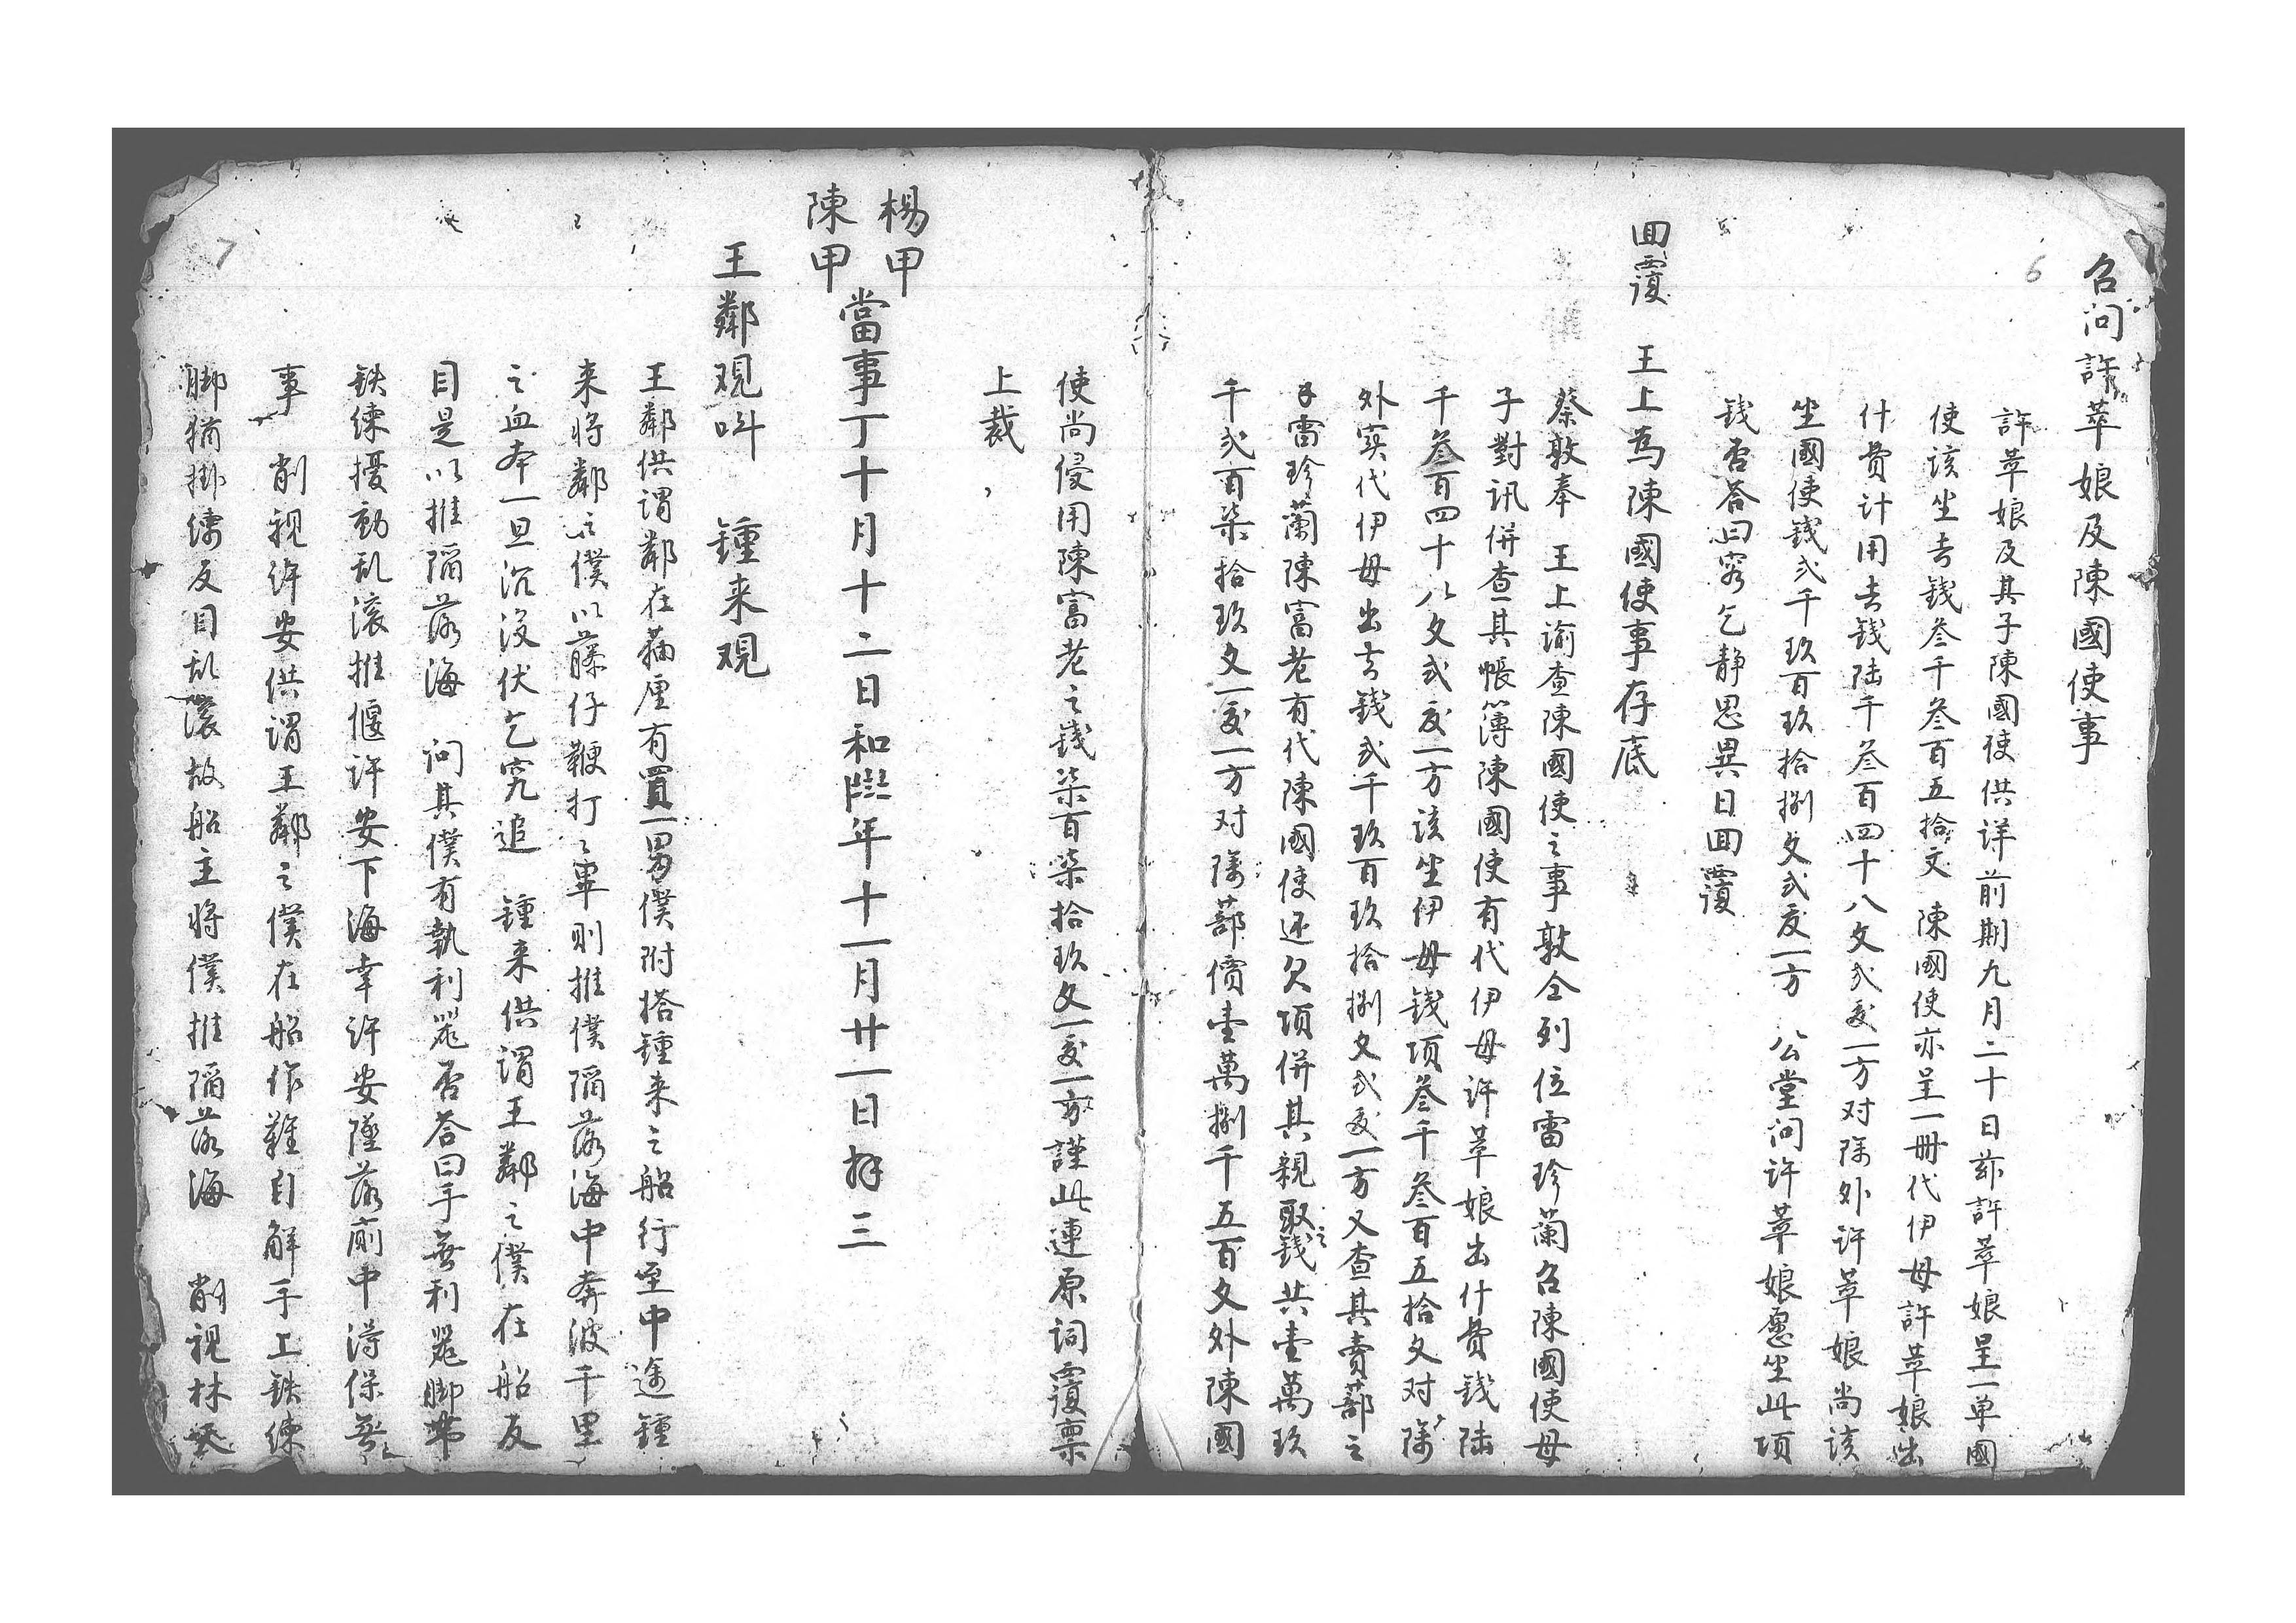 召问許萃娘及陳國使事
6
許萃娘及其子陳國使供详前期九月二十日茲許萃娘呈一单國
使该坐去錢叁千叁百五拾文 陳國使亦呈一册代伊母許萃娘出
什費计用去錢陆千叁百四十八文弍厺一方对除外许萃娘尚该
坐國使錢弍千玖百玖拾捌文弍厺一方 公堂问许萃娘愿坐此項
錢否答曰容乞静思異日回覆
回覆 王上為陳國使事存底
蔡敦奉 王上谕查陳國使之事敦仝列位雷珍蘭召陳國使母
子對訊併查其帳簿陳國使有代伊母许萃娘出什費錢陆
千叁百四十八文弍厺一方该坐伊母錢項叁千叁百五拾文对除
外实代伊母出去錢弍千玖百玖拾捌文弍厺一方又查其賣蔀之
雷珍蘭陳富老有代陳國使还欠項併其親取之錢共壹萬玖
千弍百柒拾玖文一厺一方对除蔀價壹萬捌千五百文外陳國
使尚侵用陳富老之錢柒百柒拾玖文一厺一方謹此連原词覆禀
上裁
楊甲
陳甲
當事丁十月十二日和〣年十一月廿一日拜三
王鄰观呌 鍾来观
王鄰供谓鄰在蘓厘有買一男僕附搭鍾来之船行至中途鍾
来将鄰之僕以藤仔鞭打〻畢則推僕陷落海中奔波千里
之血本一旦沉没伏乞究追 鍾来供谓王鄰之僕在船反
目是以推陷落海 问其僕有執利噐否答曰手無利噐脚带
鉄鍊擾動乱滚推偃许安下海幸许安墜落廁中得保無
事 削视许安供谓王鄰之僕在船作難自解手上鉄鍊
脚猶掛鍊反目乱滚故船主将僕推陷落海 削视林癸
7